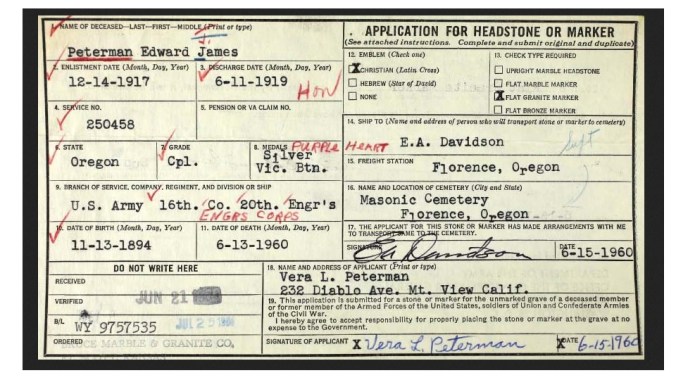 1. NAME OF DECEASED—LAST—FIRST—MIDDLE (Print or type)
Peterman Edward James
2. ENLISTMENT DATE (Month, Day, Year)
12-14-1917
3. DISCHARGE DATE (Month, Day, Year)
6-11-1919
Hon
4. SERVICE NO.
250458
5. PENSION OR VA CLAIM NO.
6. STATE
Oregon
7. GRADE
Cpl.
8. MEDALS PURPLE HEART
Silver
Vic. Btn.
9. BRANCH OF SERVICE, COMPANY, REGIMENT, AND DIVISION OR SHIP
U.S. Army 16th. Co. 20th. Engr's
ENGRS CORPS
10. DATE OF BIRTH (Month, Day, Year)
11-13-1894
11. DATE OF DEATH (Month, Day, Year)
6-13-1960
APPLICATION FOR HEADSTONE OR MARKER
(See attached instructions. Complete and submit original and duplicate)
12. EMBLEM (Check one)
X CHRISTIAN (Latin Cross)
HEBREW (Star of David)
NONE
13. CHECK TYPE REQUIRED
UPRIGHT MARBLE HEADSTONE
FLAT MARBLE MARKER
X FLAT GRANITE MARKER
FLAT BRONZE MARKER
14. SHIP TO (Name and address of person who will transport stone or marker to cemetery)
E.A. Davidson
15. FREIGHT STATION
Florence, Oregon
16. NAME AND LOCATION OF CEMETERY (City and State)
Masonic Cemetery
Florence, Oregon
17. THE APPLICANT FOR THIS STONE OR MARKER HAS MADE ARRANGEMENTS WITH ME
TO TRANSPORT SAME TO THE CEMETERY.
SIGNATURE EA Davidson
DATE
6-15-1960
DO NOT WRITE HERE
RECEIVED
VERIFIED
JUN 21
B/L
WY 9757535
JUL 25
ORDERED
BRUCE MARBLE & GRANITE CO.
18. NAME AND ADDRESS OF APPLICANT (Print or type)
Vera L. Peterman
232 Diablo Ave. Mt. View Calif.
19. This application is submitted for a stone or marker for the unmarked grave of a deceased member
or former member of the Armed Forces of the United States, soldiers of Union and Confederate Armies
of the Civil War.
I hereby agree to accept responsibility for properly placing the stone or marker at the grave at no
expense to the Government.
SIGNATURE OF APPLICANT X Vera L. Peterman
X DATE 6-15-1960